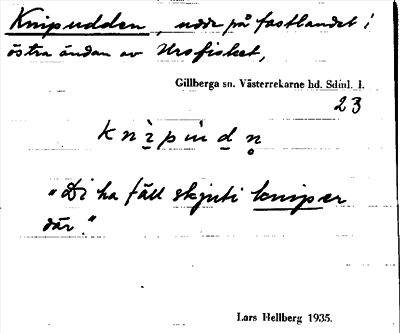 Knipudden, udde på fastlandet i
östra ändan av Ursfisket,
Gillberga sn. Västerrekarne hd. Sdml. l.
23
knìpùdn̥
"Di ha fäll skjuti kniper
där."
Lars Hellberg 1935.